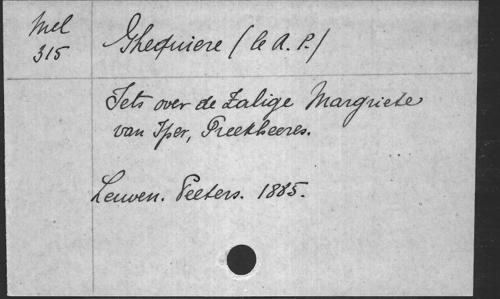 Mel
315
Ghequiere (le A. P.)
Iets over de Zalige Margriete
van Iper, Preekheeres.
Leuven. Peeters. 1885.